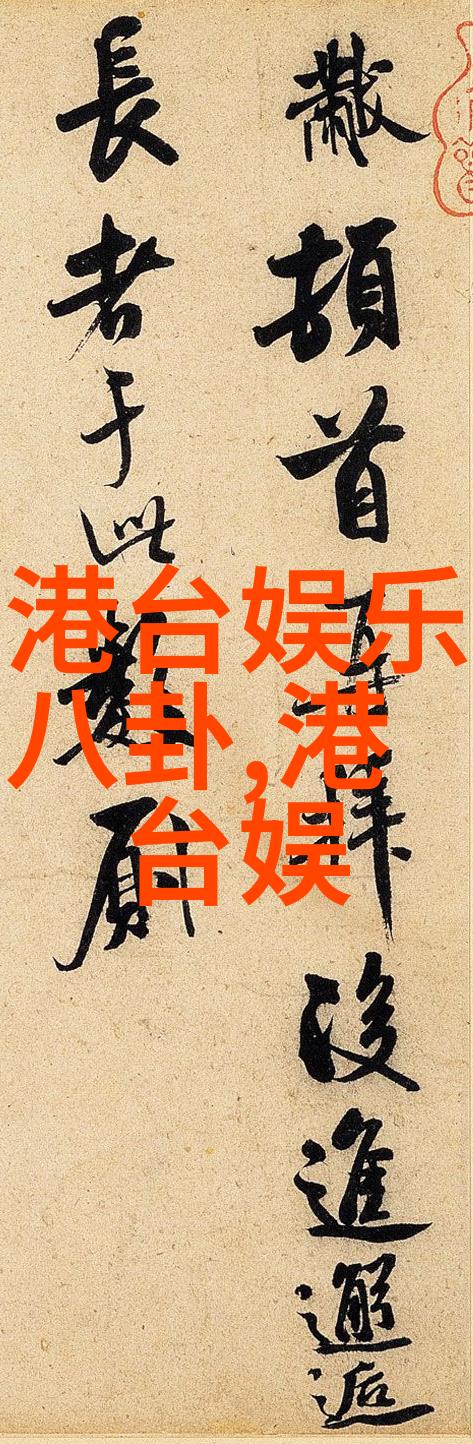 黻頓首再拜後進邂逅
長者于此數
港台娱乐
八卦,港
台娱